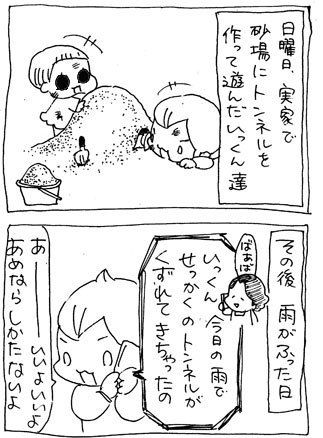 日曜日、実家で
砂場にトンネルを
作って遊んだいっくん達
その後 雨がふった日
ばぁば
いっくん 今日の雨で
せっかくのトンネルが
くずれてきちゃったの
あーーーいいよいいよ
あめならしかたないよ